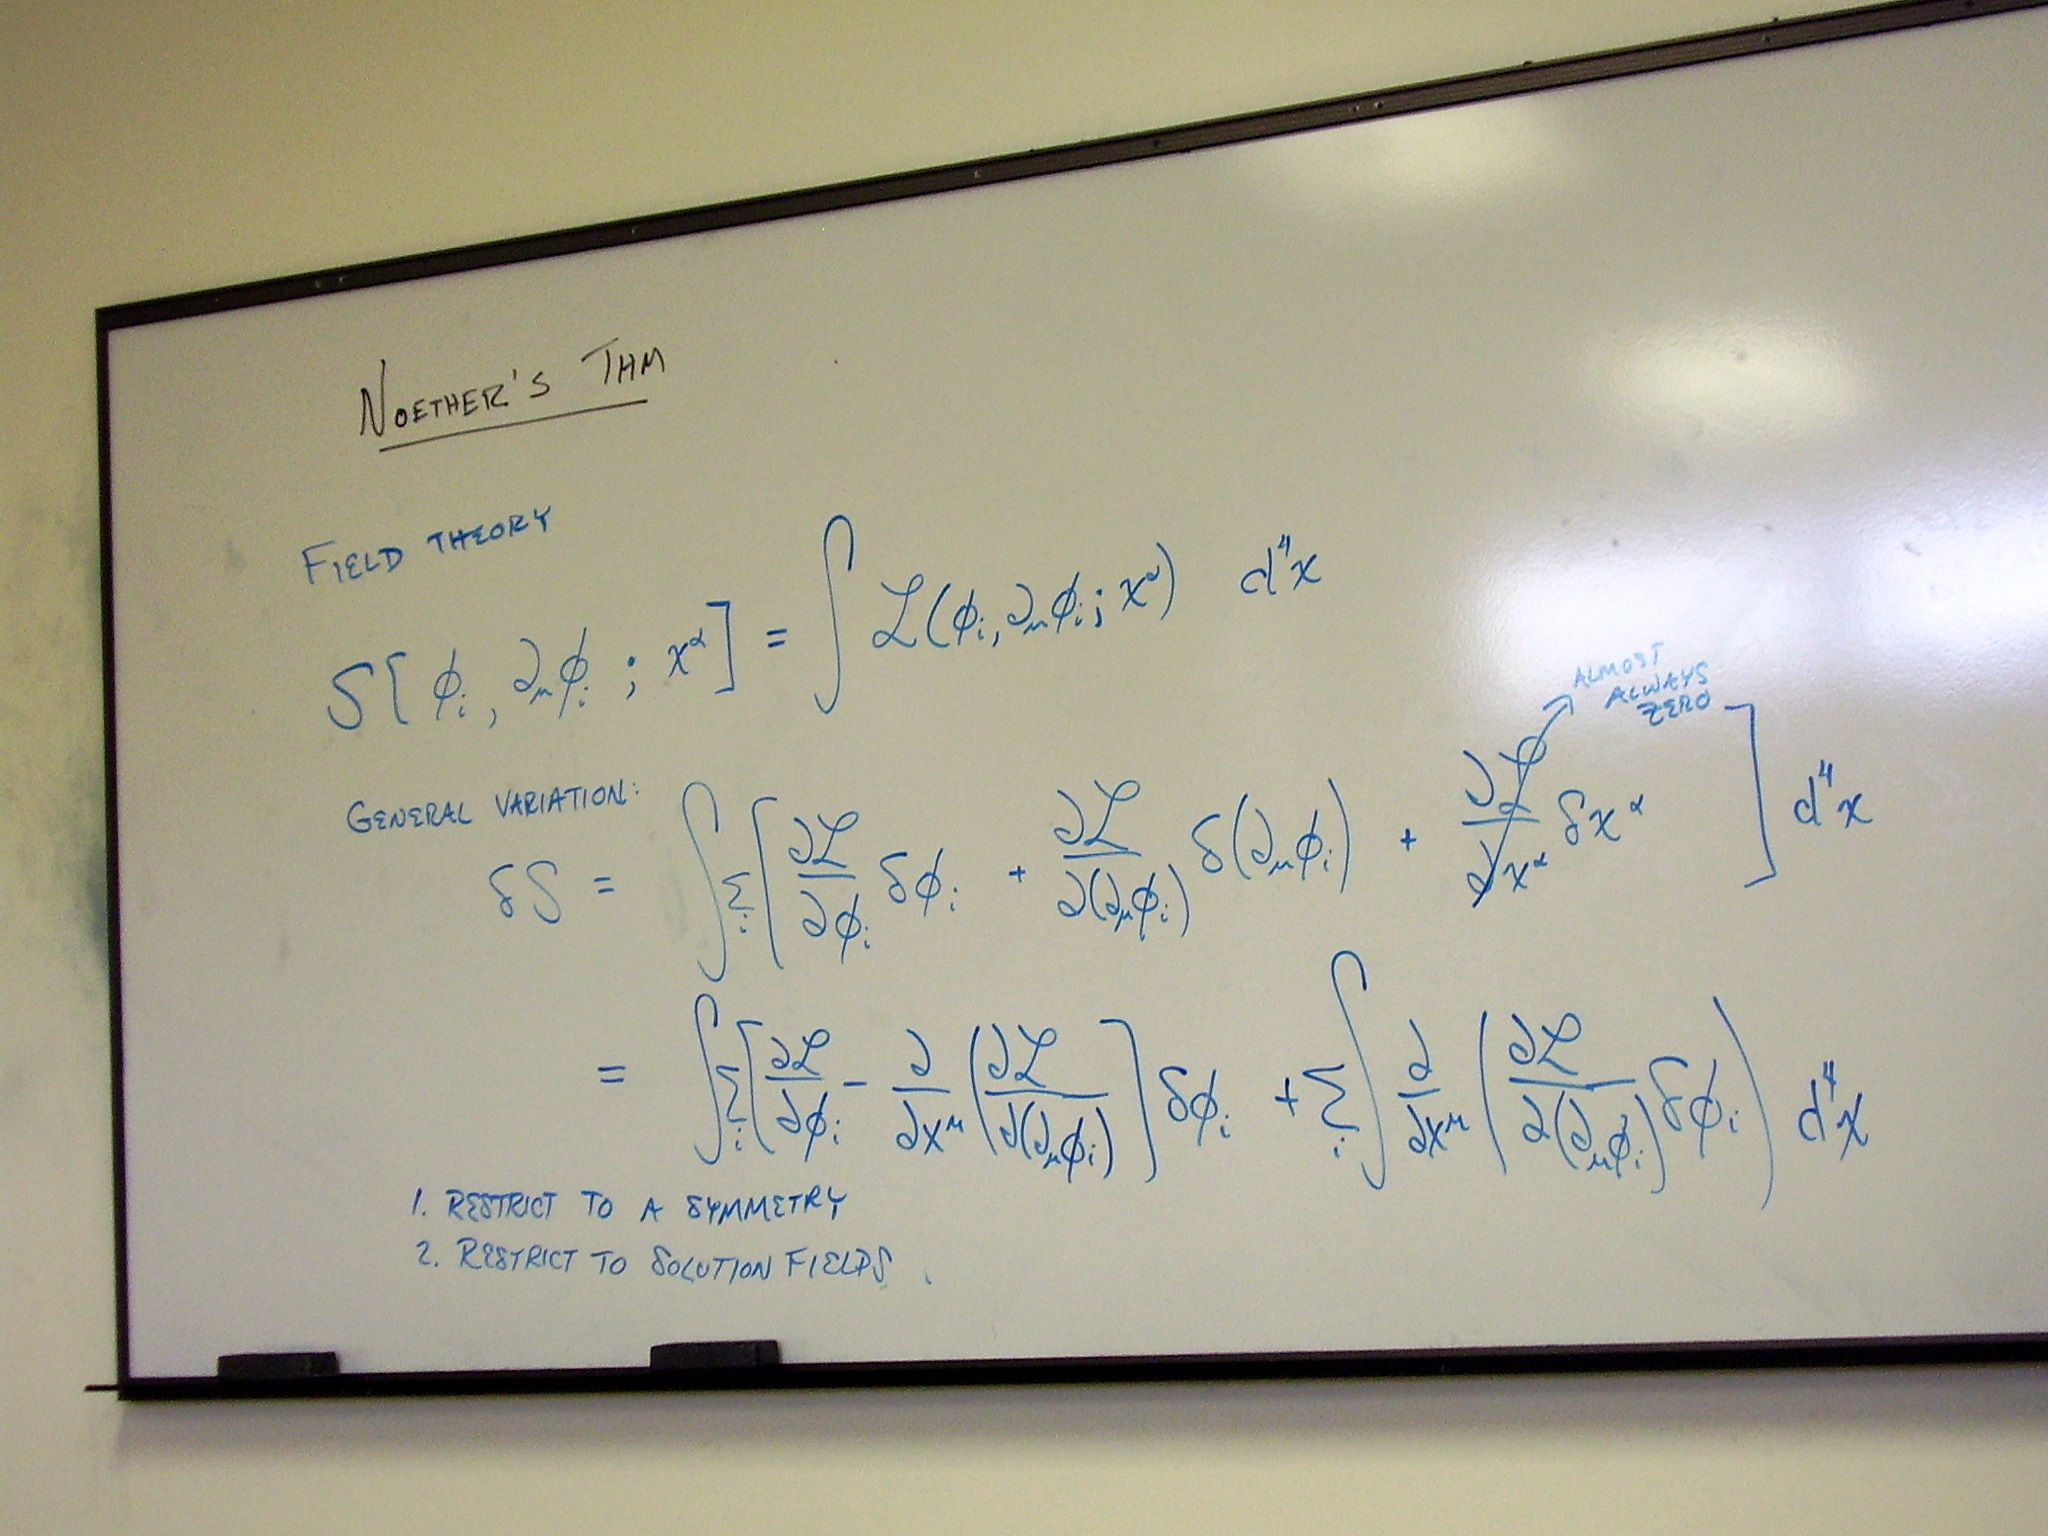 NOETHER'S THM
FIELD THEORY
S[ϕᵢ, ∂_μϕᵢ ; x^α] = ∫ ℒ(ϕᵢ, ∂_μϕᵢ; x^α) d⁴x
ALMOST
ALWAYS
ZERO
GENERAL VARIATION:
δS = ∫ Σᵢ [ ∂ℒ/∂ϕᵢ δϕᵢ + ∂ℒ/∂(∂_μϕᵢ) δ(∂_μϕᵢ) + ∂ℒ/∂x^α δx^α ] d⁴x
= ∫ Σᵢ [ ∂ℒ/∂ϕᵢ − ∂/∂x^μ ( ∂ℒ/∂(∂_μϕᵢ) ] δϕᵢ + Σᵢ ∫ ∂/∂x^μ ( ∂ℒ/∂(∂_μϕᵢ) δϕᵢ ) d⁴x
1. RESTRICT TO A SYMMETRY
2. RESTRICT TO SOLUTION FIELDS